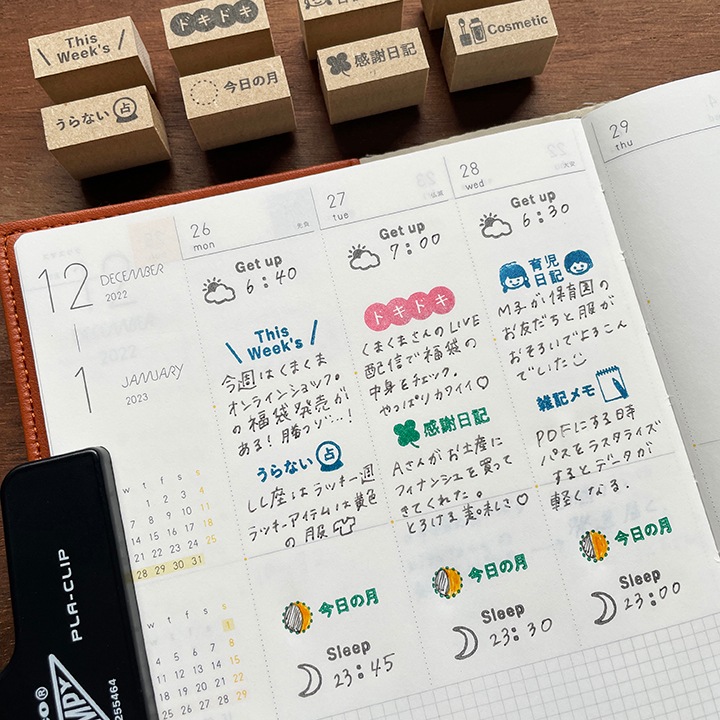 This
Week's
ドキドキ
Cosmetic
うらない 占
今日の月
感謝日記
29
thu
12 DECEMBER
2022
1 JANUARY
2023
26
mon
Get up
6:40
This
Week's
今週はくまくま
オンラインショップ。
の福袋発売が
ある!勝つゾ…!
うらない 占
しし座はラッキー週
ラッキーアイテムは黄色
の服
今日の月
Sleep
23:45
27
tue
Get up
7:00
ドキドキ
くまくまさんのLIVE
配信で福袋の
中身をチェック。
やっぱりカワイイ♡
感謝日記
Aさんがお土産に
フィナンシェを買って
きてくれた。
とろける美味しさ♡
今日の月
Sleep
23:30
28
wed
Get up
6:30
育児
日記
M子が保育園の
お友だちと服が
おそろいでよろこん
でいた
雑記メモ
PDFにする時
パスをラスタライズ
するとデータが
軽くなる.
今日の月
Sleep
23:00
w t f s s
7 8 9 10 11
14 15 16 17 18
21 22 23 24 25
28 29 30 31
w t f s s
1
4 5 6 7 8
11 12 13 14 15
18 19 20 21 22
25 26 27 28 29
PLA-CLIP
255464